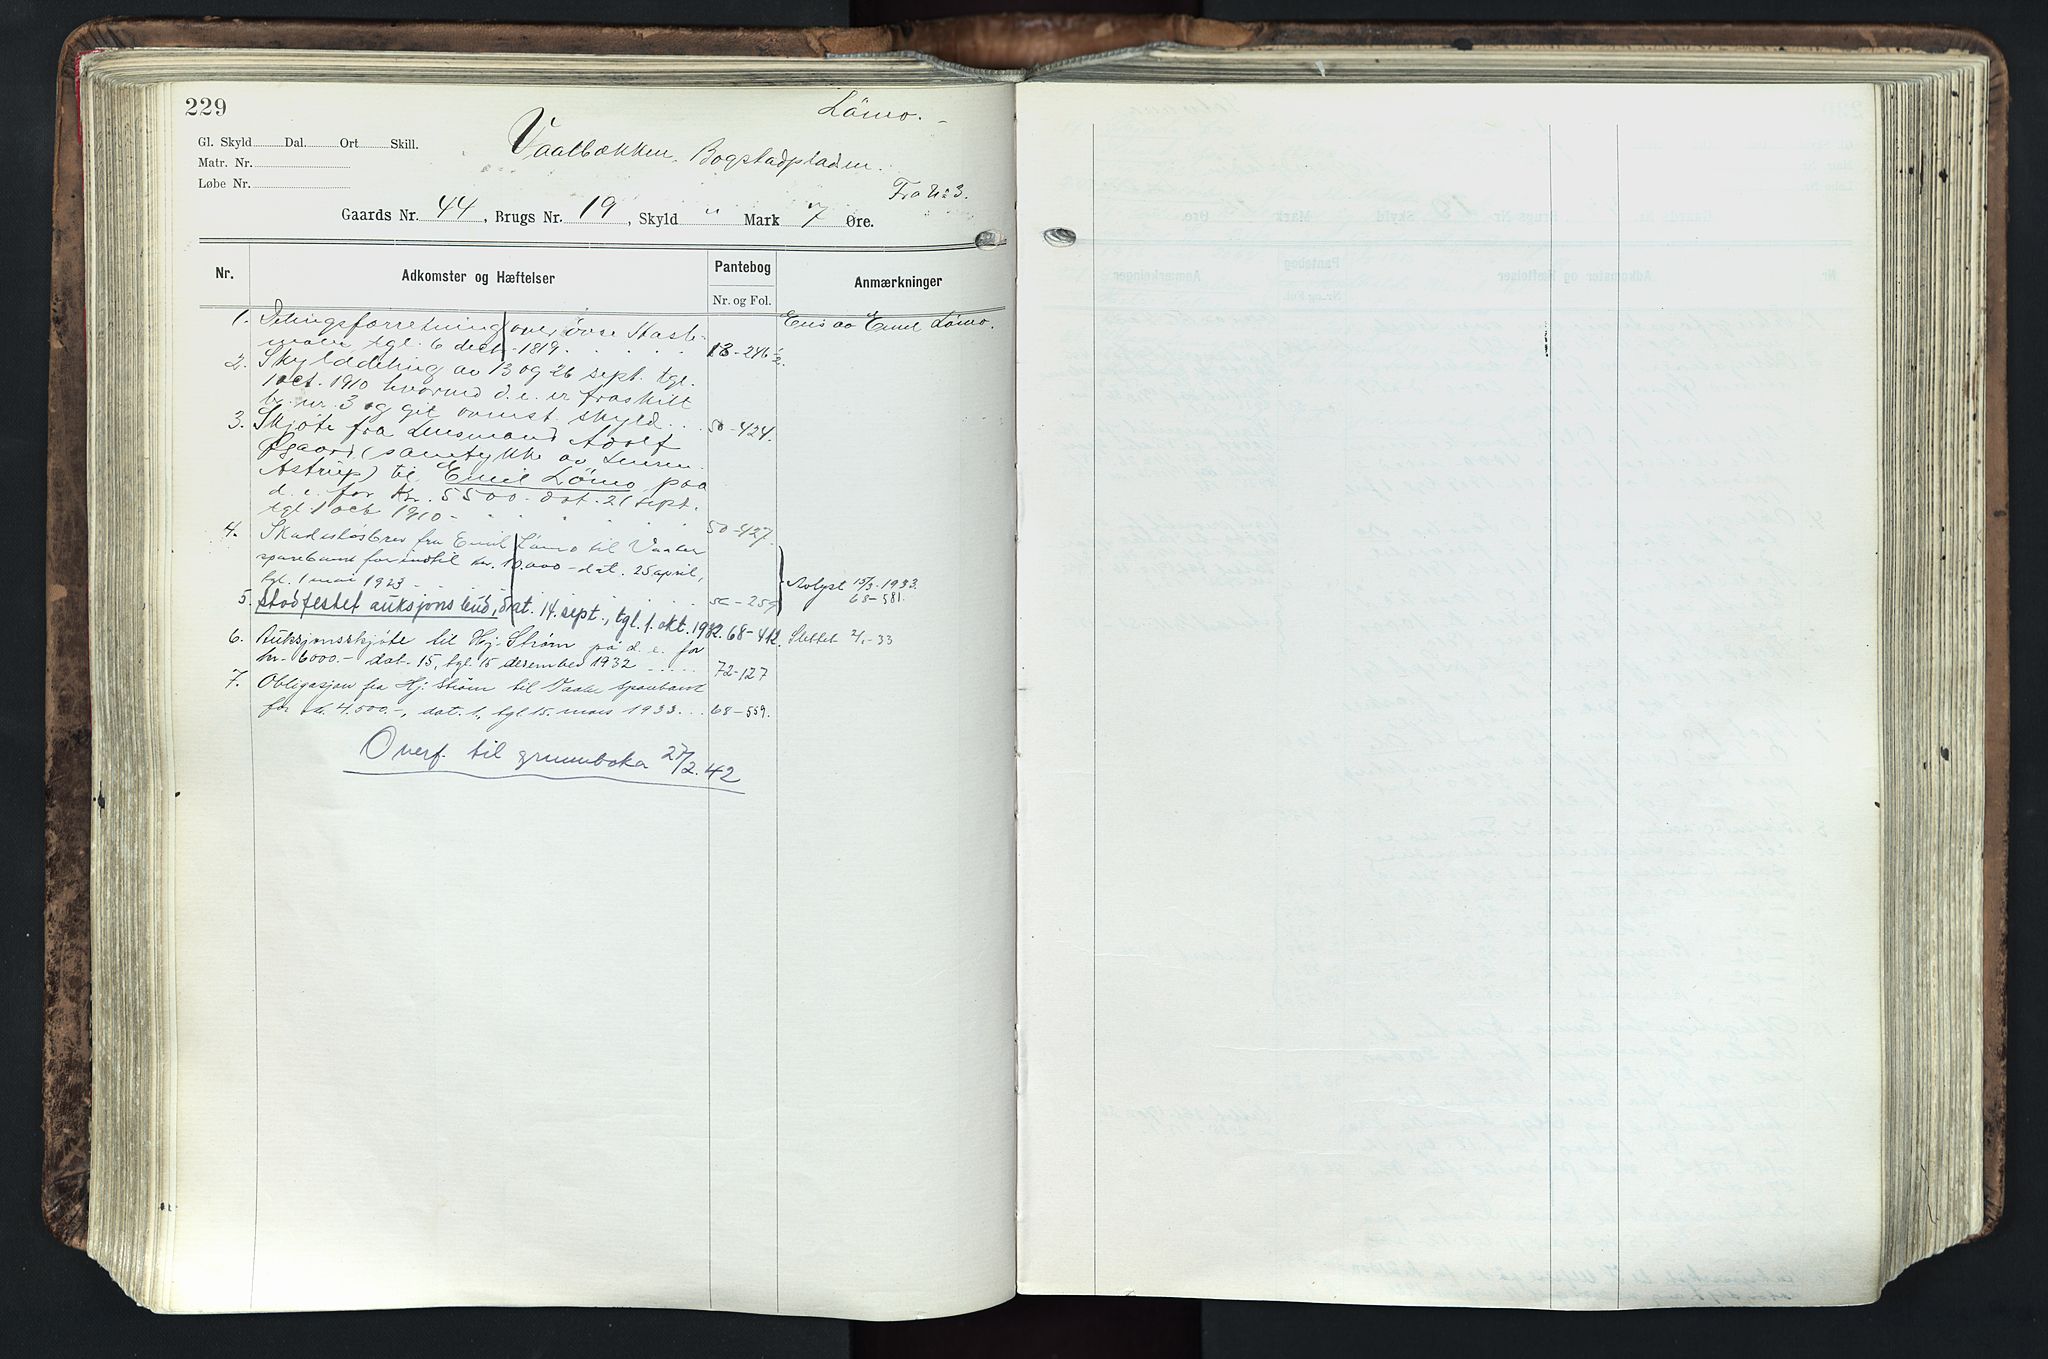 229
Lömo. -
Gl. Skyld Dal. Ort Skill.
Vaalbækken, Bogstadpladsen.
Matr. Nr.
Løbe Nr.
Fra No 3.
Gaards Nr. 44, Brugs Nr. 19, Skyld " Mark 7 Øre.
Nr. Adkomster og Hæftelser Pantebog Anmærkninger
Nr. og Fol.
1. Delingsforretning over övre Hast- Eies av Emil Lömo.
moen tgl. 6 decb. 1819. 13-246 1/2.
2. Skylddeling av 13 og 26 sept. tgl.
1 oct. 1910 hvorved d. e. er fraskilt
br. nr. 3 og git ovenst. skyld. . . 50-424.
3. Skjöte fra Lensmand Adolf
Øgaard (samtykke av Lensm.
Astrup) til Emil Lömo paa
d. e. for Kr. 5500.- dat. 21 sept.
tgl. 1 octb 1910 - 50-427.
4. Skadesløsbrev fra Emil Lömo til Vaaler
sparebank for indtil kr. 10.000 - dat. 25 april,
tgl. 1 mai 1923 - 56-259 Avlyst 15/3-1933.
68-581.
5. Stadfestet auksjonsbud, dat. 14. sept., tgl. 1. okt. 1932. 68-412.
6. Auksjonsskjøte til Hj. Strøm på d. e. for Slettet 4/1-33
kr. 6000.- dat. 15, tgl. 15 desember 1932 . . . . . 72-127
7. Obligasjon fra Hj. Strøm til Vaaler Sparebank
for kr. 4.500.-, dat. 1, tgl. 15. mars 1933. . . 68-559.
Overf. til grunnboka 27/2.42